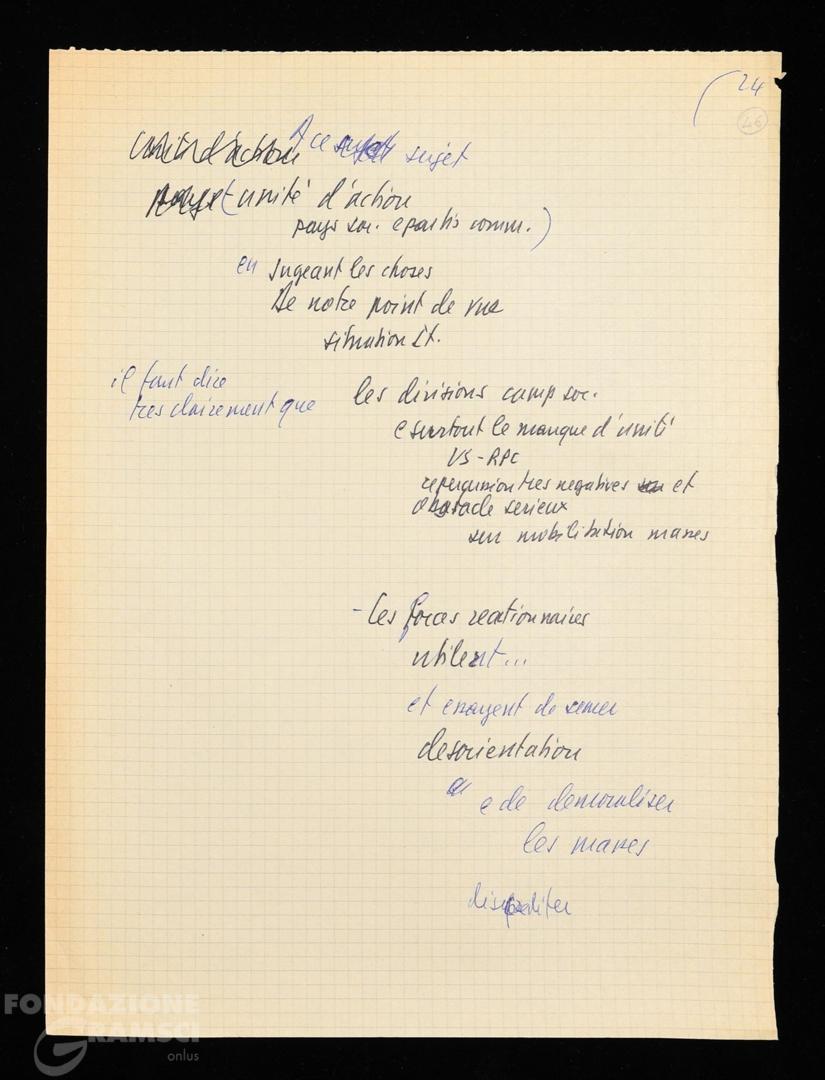 24
46
unité d'action A ce sujet sujet
(unité d'action
pays soc. e partis comm.)
en jugeant les choses
de notre point de vue
situation It.
il faut dire
tres clairement que
les divisions camp soc.
e surtout le manque d'unité
US-RPC
repercussion tres negatives et
obstacle serieux
sur mobilitation masses
- les forces reactionnaires
utilent...
et essayent de semer
desorientation
e de demoraliser
les masses
discrediter
FONDAZIONE
GRAMSCI
onlus